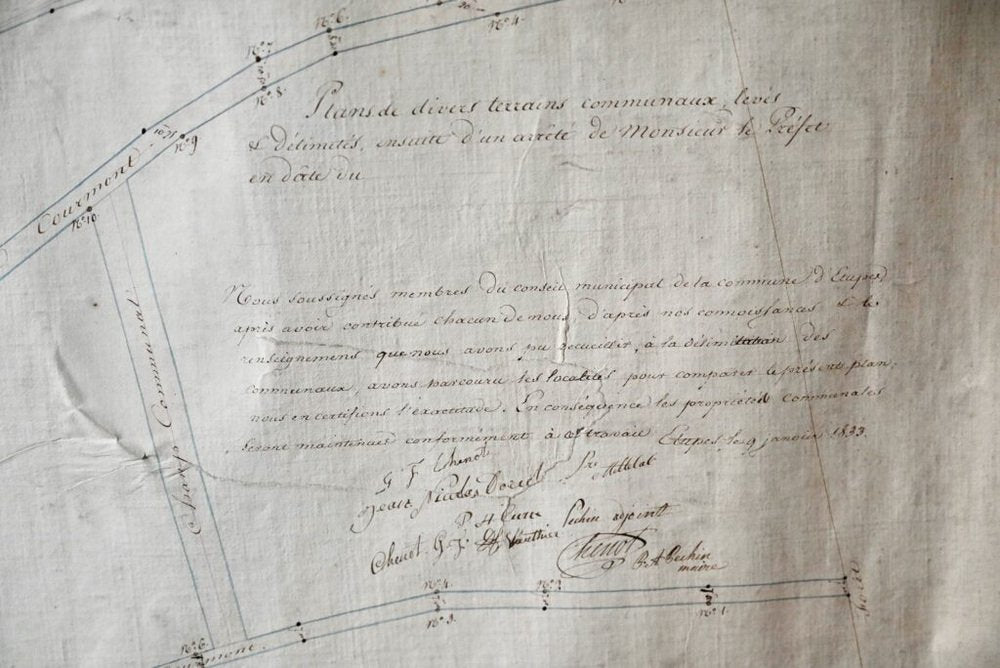 N.º 6.
N.º 4.
N.º 7.
N.º 8.
N.º 9
Courmont
N.º 10.
Plans de divers terrains communaux, levés
& délimités, ensuite d'un arrêté de Monsieur le Préfet
en dâte du
Nous soussignés membres du conseil municipal de la commune d'Etupes,
après avoir contribué chacun de nous, d'après nos connoissances & le
renseignemens que nous avons pu recueillir, à la délimitation des
communaux, avons parcouru les localités pour comparer le présent plan,
nous en certifions l'exactitude. En conséquence les propriétés communales
seront maintenues conformément à ce travail Etupes, le 9 janvier 1833.
Communal
G F Chenot
Jean Nicolas Doriot
P. H. Curie
Pechin adjoint
Chenot. G. J.
Vauthier
Chenot
P. A Pechin
maire
N.º 4.
N.º 2.
N.º 3.
N.º 1.
N.º 6.
Courmont.